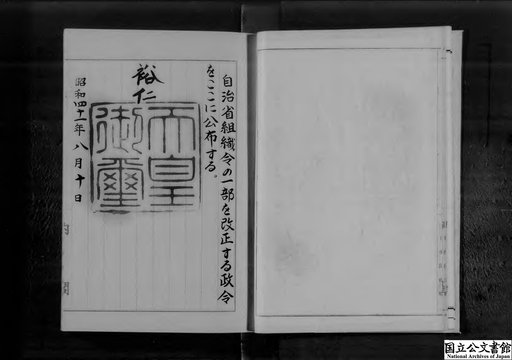 自治省組織令の一部を改正する政令
をここに公布する。
裕仁
天皇
御璽
昭和四十一年八月十日
国立公文書館
National Archives of Japan